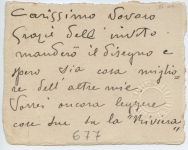 Carissimo Novaro
Grazie dell' invito
manderò il disegno e
spero sia cosa miglio-
re dell' altre mie.
Vorrei ancora leggere
cose sue su la "Riviera"
677